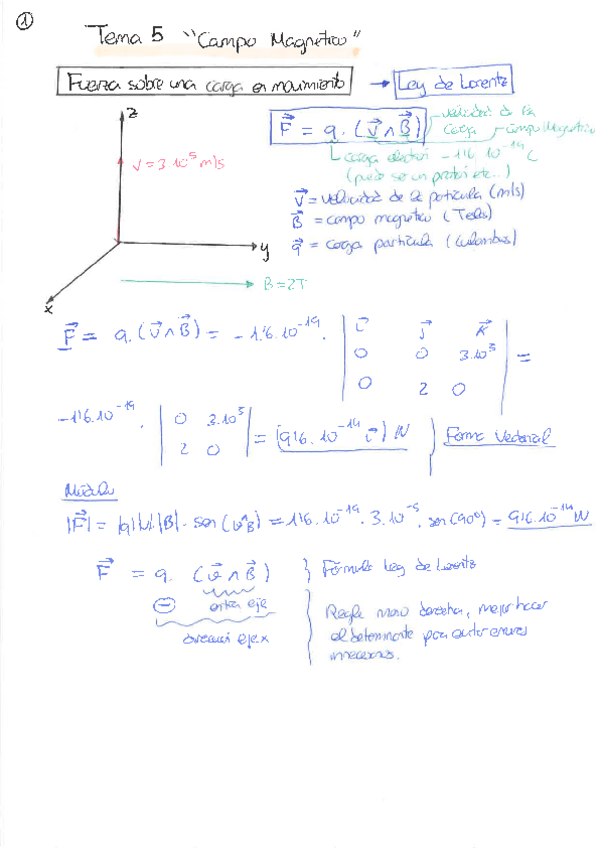 1
Tema 5 "Campo Magnético"
Fuerza sobre una carga en movimiento → Ley de Lorentz
z
v = 3·10⁵ m/s
y
x
B = 2T
F⃗ = q · (v⃗ ∧ B⃗)
velocidad de la carga
Campo Magnético
carga electrón -1'6·10⁻¹⁹ C
(puede ser un protón etc..)
v⃗ = velocidad de la partícula (m/s)
B⃗ = campo magnético (Teslas)
q⃗ = carga partícula (Culombios)
F⃗ = q · (v⃗ ∧ B⃗) = -1'6·10⁻¹⁹ · | i⃗ j⃗ k⃗ | =
| 0 0 3·10⁵ |
| 0 2 0 |
-1'6·10⁻¹⁹ · | 0 3·10⁵ | = (9'6·10⁻¹⁴ i⃗) N } Forma Vectorial
| 2 0 |
Módulo
|F⃗| = |q|·|v|·|B|· sen(v^B) = 1'6·10⁻¹⁹ · 3·10⁻⁵ · sen(90º) = 9'6·10⁻¹⁴ N
F⃗ = q · (v⃗ ∧ B⃗) } Fórmula Ley de Lorentz
⊖ eje
eje x
Regla mano derecha, mejor hacer
el determinante para evitar errores
innecesarios.